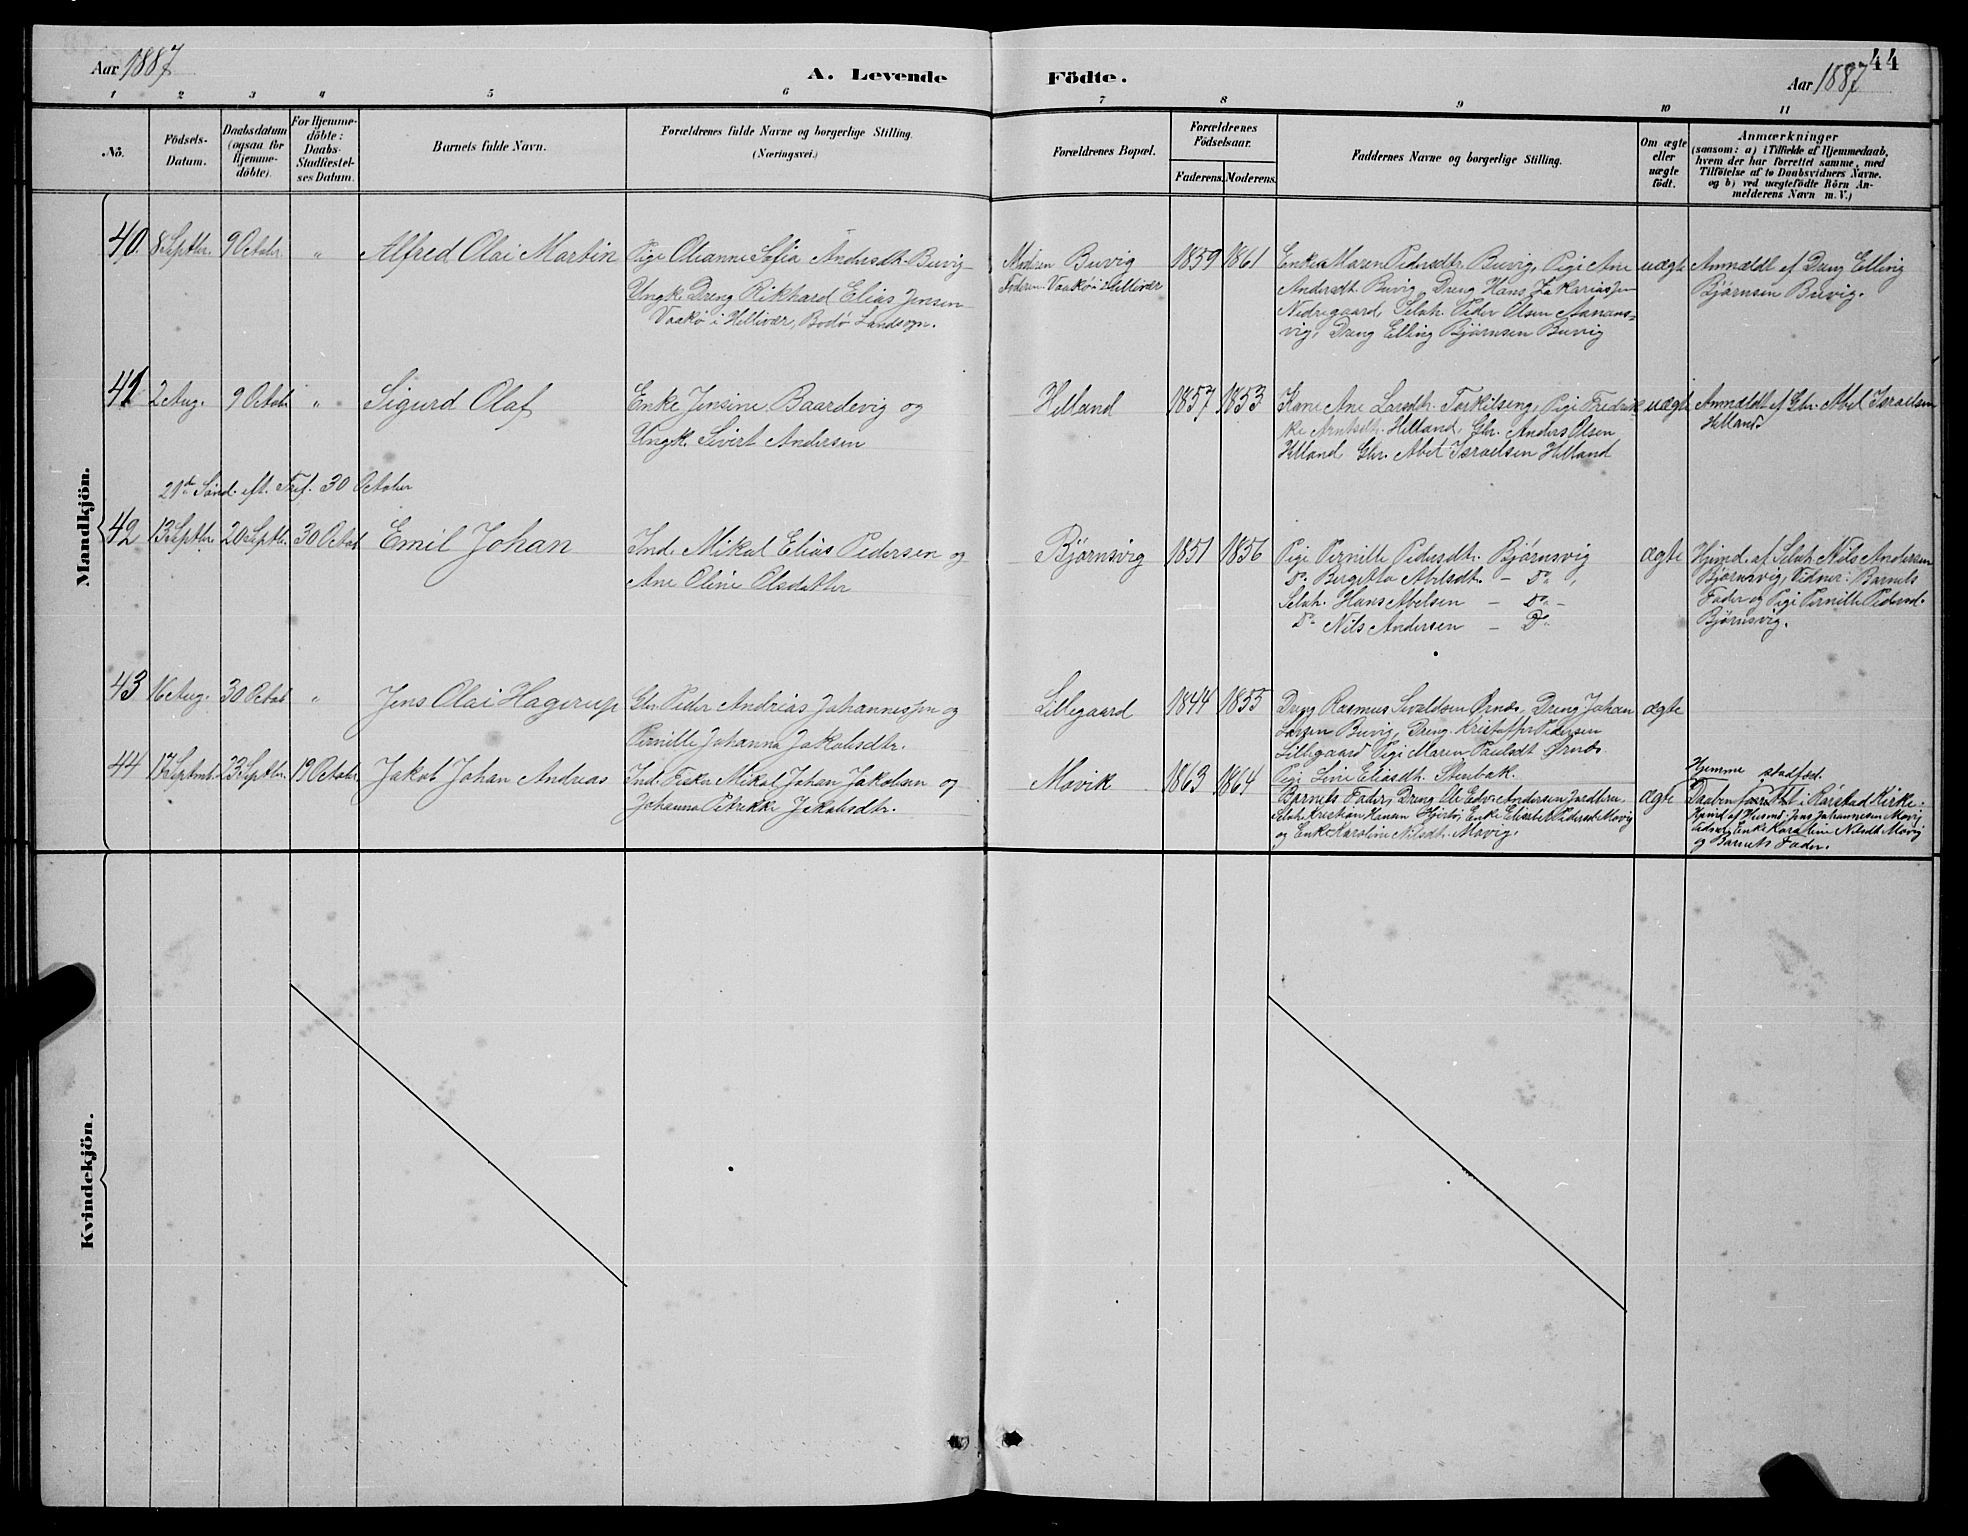 Aar 1887
A. Levende Födte.
44
Aar 1887
1 2 3 4 5 6 7 8 9 10 11
No.
Födsels-Datum.
Daabsdatum (ogsaa for Hjemme-döbte).
For Hjemme-döbte: Daabs-Stadfæstel-ses Datum.
Barnets fulde Navn.
Forældrenes fulde Navne og borgerlige Stilling.
(Næringsvei.)
Forældrenes Bopæl.
Forældrenes Födselsaar.
Faderens. Moderens.
Faddernes Navne og borgerlige Stilling.
Om ægte eller uægte födt.
Anmærkninger
(saasom: a) i Tilfælde af Hjemmedaab,
hvem der har forrettet samme, med
Tilföielse af to Daabsvidners Navne.
og b) ved uægtefödte Börn An-
melderens Navn m. V.)
Mandkjön.
40. 8 Septbr. 9 Octobr. " Alfred Olai Martin
Pige Olianne Sofia Andersdt. Buvig
Ungk. Dreng Rikhard Elias Jensen
Vaakø i Hellivær, Bodø Landsogn.
Moderen Buvig
Faderen Vaakø i Hellivær
1859 1861
Enke Maren Pedersdtr. Buvig, Pige Ane
Andersdt. Buvig, Dreng Hans Zakariasen
Nedregaard, Selvh. Peder Olsen Aanans=
vig, Dreng Elling Bjørnsen Buvig
uægte
Anmeldt af Dreng Elling
Bjørnsen Buvig.
41 2 Aug. 9 Octobr " Sigurd Olaf
Enke Jensine Baardevig og
Ungk. Sivert Andersen
Helland
1857 1853
Kone Ane Larsdtr. Torkilseng, Pige Fredrik
ke Arntsdtr. Helland, Gbr. Anders Olsen
Helland Gbr. Abel Israelsen Helland
uægte
Anmeldt af Gbr. Abel Israelsen
Helland
21de Sønd. eft. Tref. 30 October
42 13 Septbr. 20 Septbr. 30 Octob Emil Johan
Ind. Mikal Elias Pedersen og
Ane Oline Olsdatter
Bjørnsvig
1851 1856
Pige Pernille Pedersdtr. Bjørnsvig
Do. Bergitta Abelsdt. - Do.
Selvh. Hans Abelsen - Do. -
Do. Nils Andersen - Do.
ægte
Hjmd. af Selvh. Nils Andersen
Bjørnsvig, Vidner: Barnets
Fader og Pige Pernille Pedersd.
Bjørnsvig.
43 16 Aug. 30 Octob " Jens Olai Hagerup
Gbr. Peder Andrias Johannesen og
Pernille Johanna Jakobsdtr.
Lillegaard
1844 1855
Dreng Rasmus Sivaldsen Ørnæs, Dreng Johan
Larsen Buvig, Dreng Kristoffer Pedersen
Lillegaard Pige Maren Paulsdt Ørnæs
Pige Line Eliasdtr. Stenbak.
ægte
44 17 Septmb. 23 Septbr. 19 October Jakob Johan Andreas
Ind. Fisker Mikal Johan Jakobsen og
Johanna Petrikke Jakobsdtr.
Movik
1863 1864
Barnets Fader, Dreng Ole Edv. Andersen
Selvh. Kristian Hansen Hjertø, Enke Elisabet Pedersdt Movig
og Enke Karoline Nilsdt. Movig.
ægte
Hjemme stadfæst.
Daaben i Rørstad Kirke.
Hjmd. af Husmd. Jens Johannesen Movig
Vidner, Enke Karoline Nilsdt Movig
og Barnets Fader.
Kvindekjön.